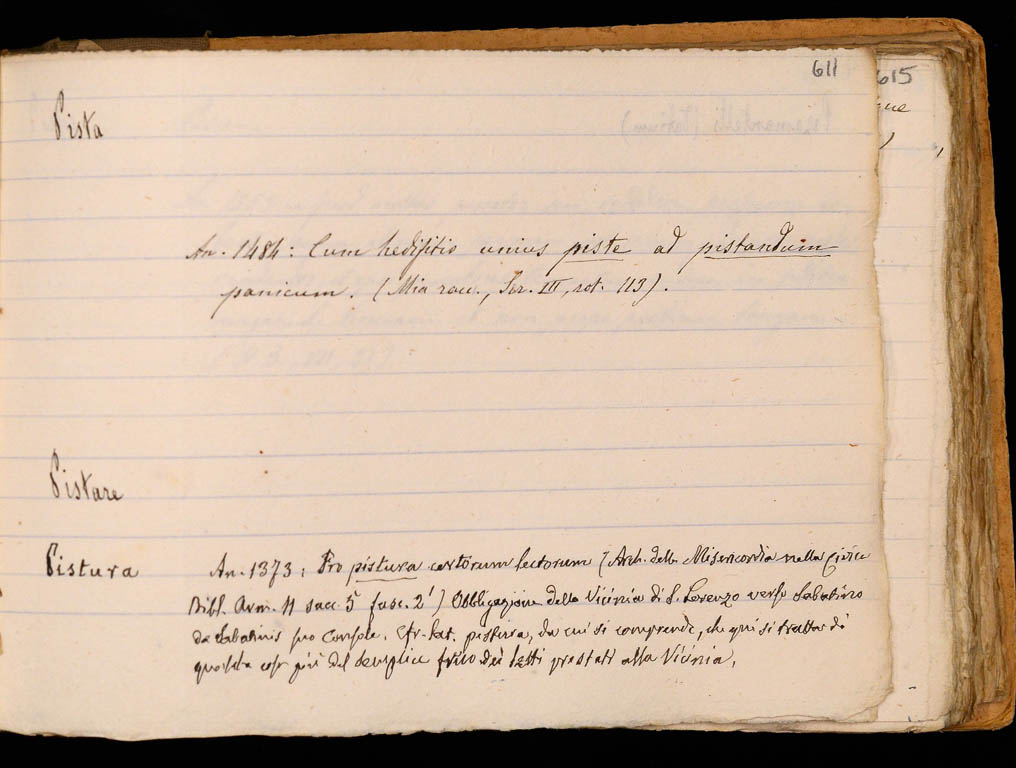 611
615
Pista
An. 1484: Cum hedifitio unius piste ad pistandum
panicum. (Mia racc., Ser. III, rot. 113).
Pistare
Pistura
An. 1373: Pro pistura certorum lectorum (Arch. della Misericordia nella Civica
Bibl. Arm. 11 sacc. 5 fasc. 2') Obbligazione della Vicinia di S. Lorenzo verso Sabatino
de Sabatinis suo Console. Cfr. lat. pistura, da cui si comprende, che qui si tratta di
qualche cosa più del semplice fitto dei letti prestati alla Vicinia.